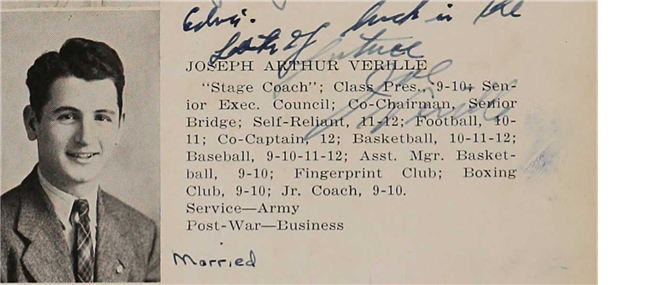 Edwin. luck in the
Lots of future
JOSEPH ARTHUR VERILLE
"Stage Coach"; Class Pres., 9-10; Sen-
ior Exec. Council; Co-Chairman, Senior
Bridge; Self-Reliant, 11-12; Football, 10-
11; Co-Captain, 12; Basketball, 10-11-12;
Baseball, 9-10-11-12; Asst. Mgr. Basket-
ball, 9-10; Fingerprint Club; Boxing
Club, 9-10; Jr. Coach, 9-10.
Service—Army
Post-War—Business
Married